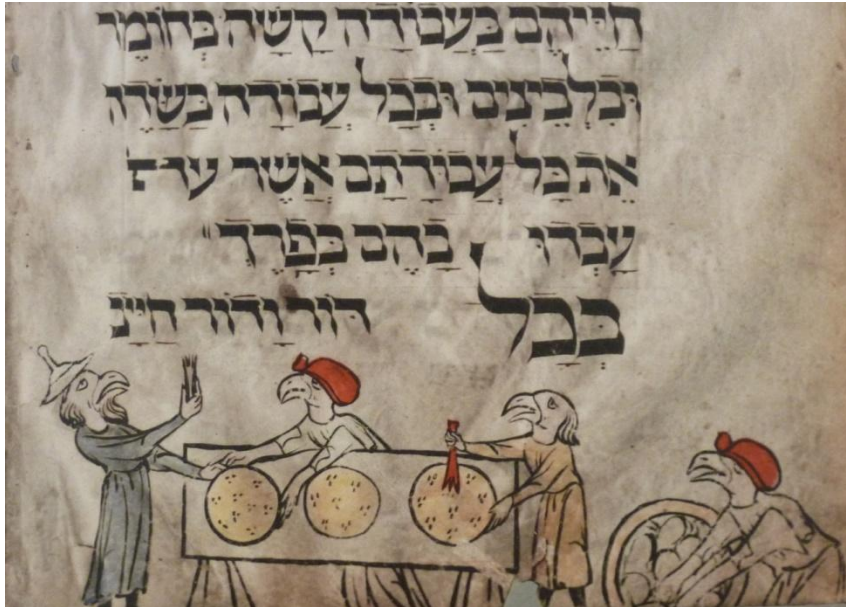 חַיֵּיהֶם בַּעֲבוֹדָה קָשָׁה בְּחוֹמֶר
וּבִלְבֵינִים וּבְכָל עֲבוֹדָה בַּשָּׂדֶה
אֵת כָּל עֲבוֹדָתָם אֲשֶׁר
עָבְדוּ בָהֶם בְּפָרֶךְ
בְּכָל דוֹר וָדוֹר חַיָּיב